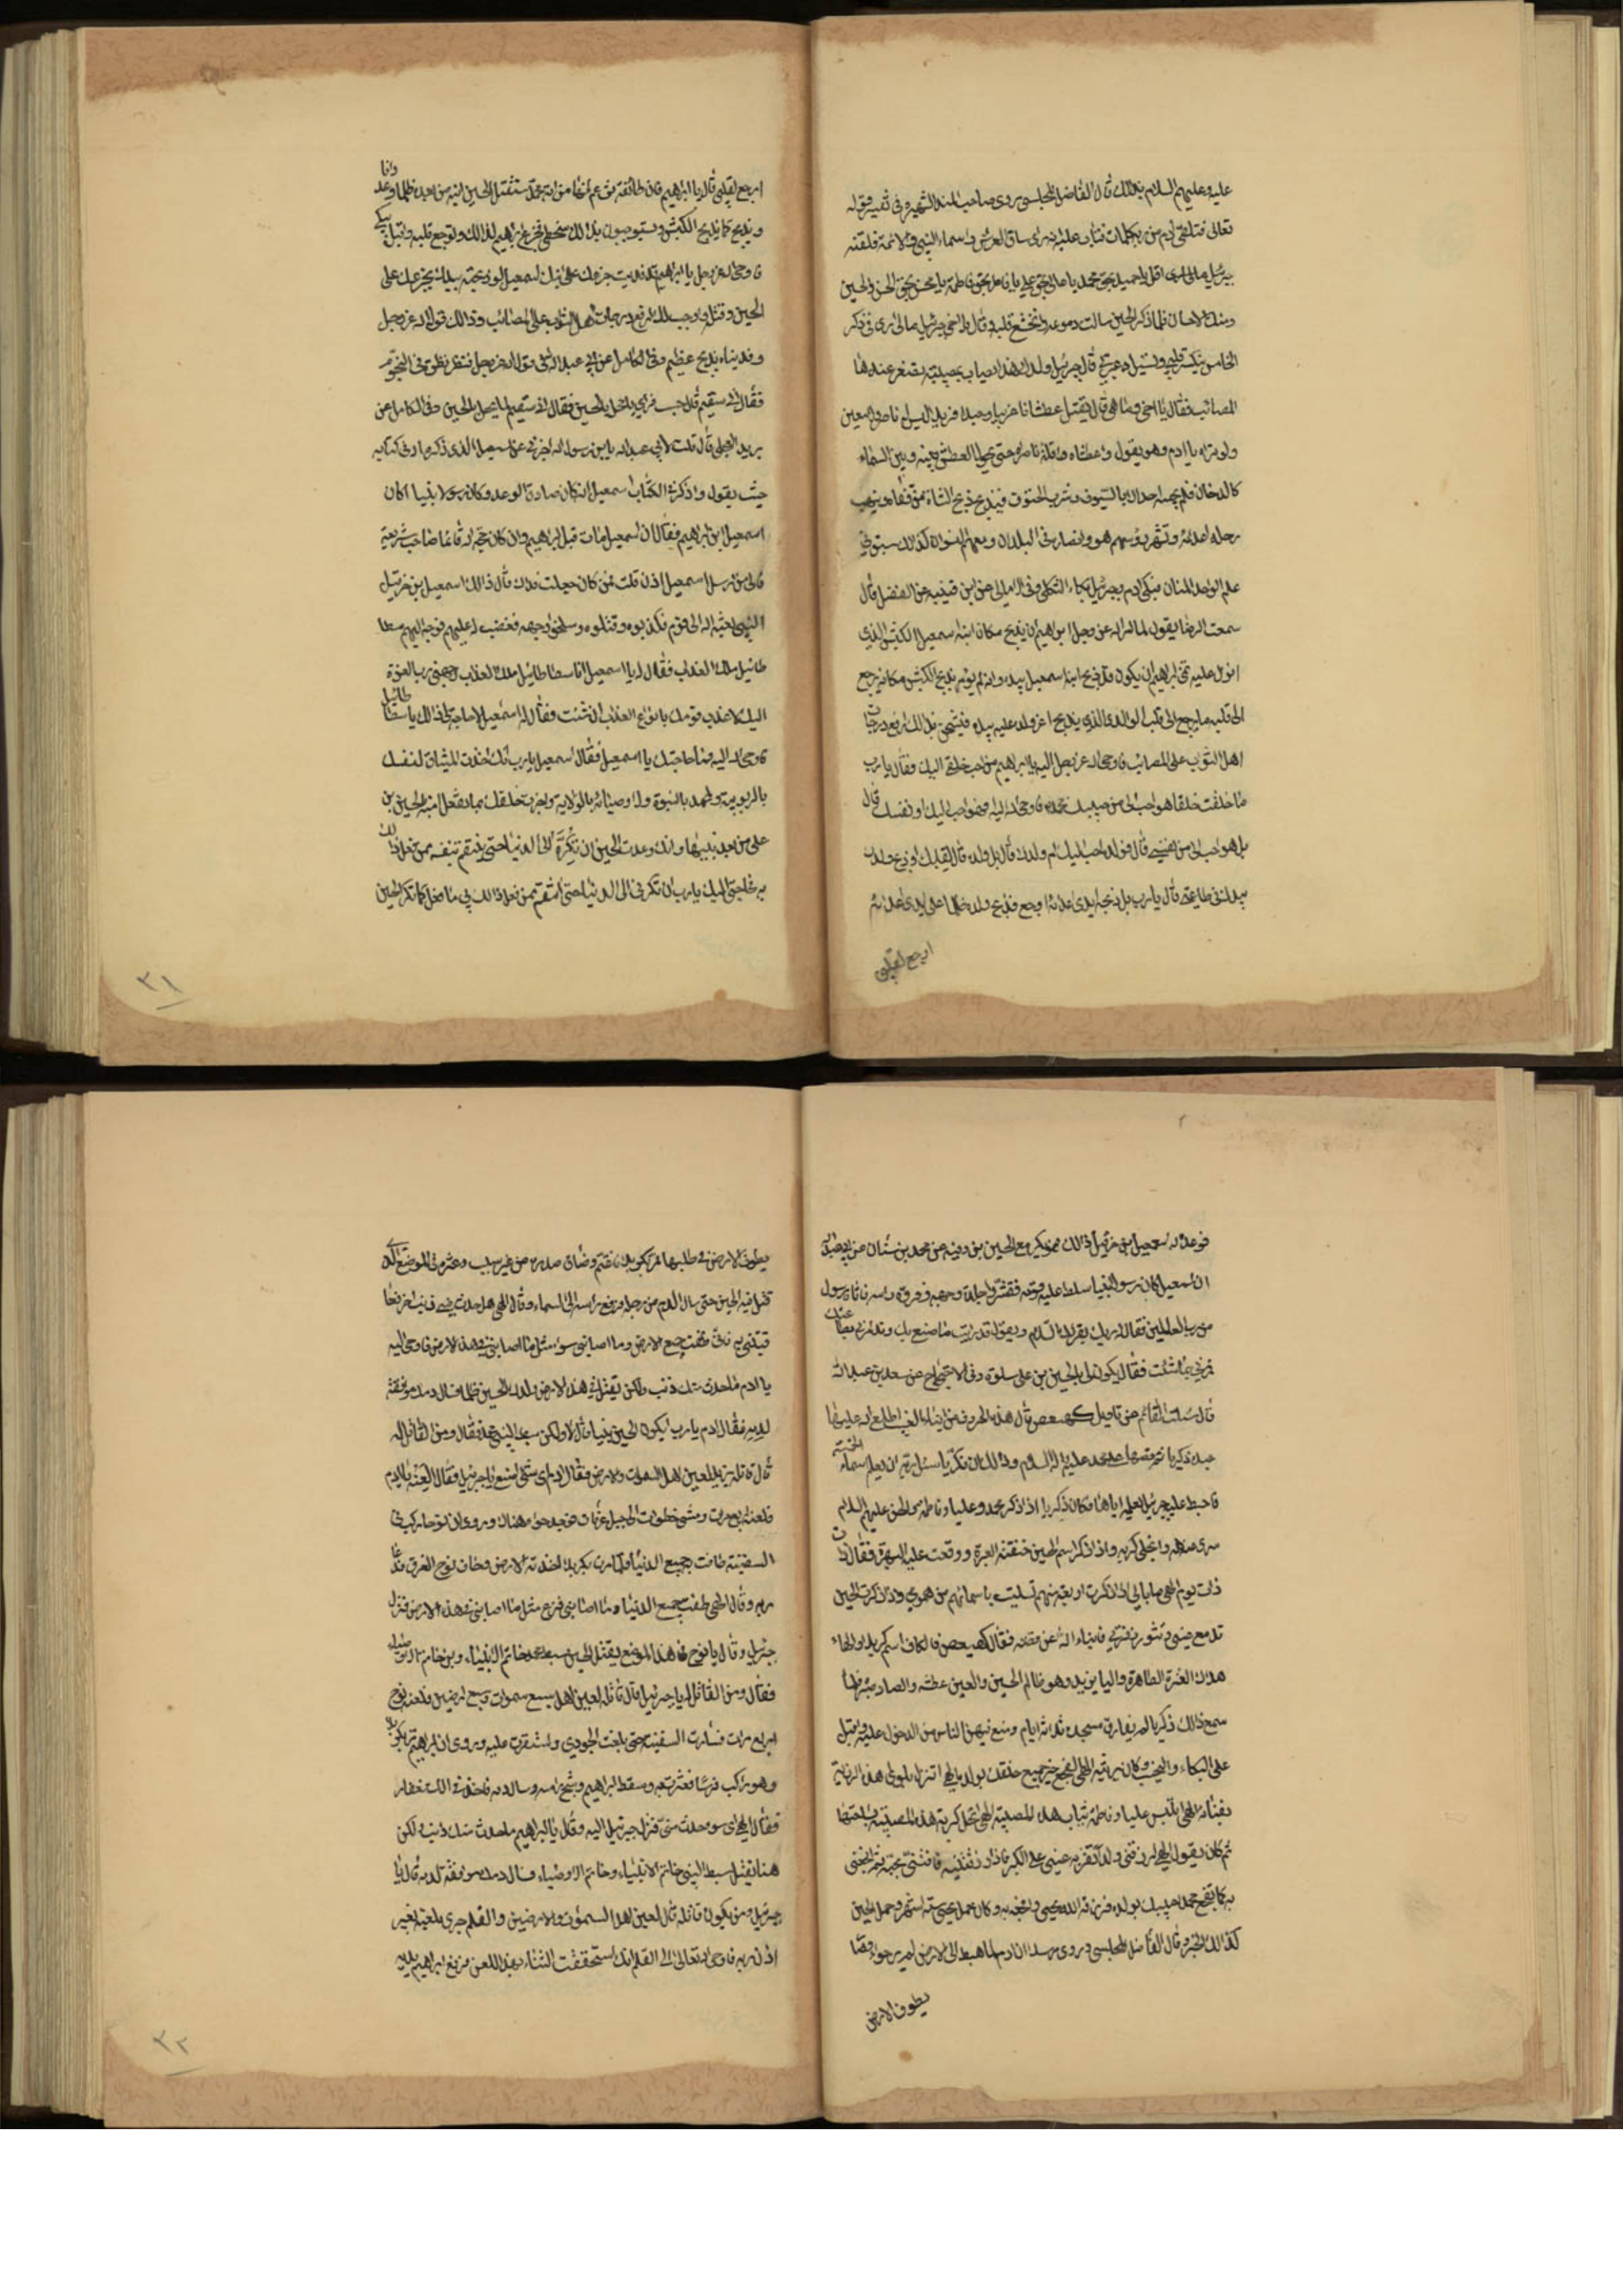 عليه وعليهم السلام بذلك قال الفاضل المجلسي روى صاحب الدر الثمين في تفسير قوله
تعالى فتلقى ادم من ربه كلمات فتاب عليه انه راى ساق العرش و اسماء النبي والائمة فلقنه
جبرئيل قل يا حميد بحق محمد يا عالي بحق علي يا فاطر بحق فاطمة يا محسن بحق الحسن والحسين
ومنك الاحسان فلما ذكر الحسين سالت دموعه وانخشع قلبه وقال يا اخي جبرئيل مالي ارى في ذكر
الخامس ينكسر قلبي وتسيل عبرتي قال جبرئيل ولدك هذا يصاب بمصيبة تصغر عندها
المصائب فقال يا اخي وما هي قال يقتل عطشانا غريبا وحيدا فريدا ليس له ناصر ولا معين
ولو تراه يا ادم وهو يقول واعطشاه واقلة ناصراه حتى يحول العطش بينه وبين السماء
كالدخان فلم يجبه احد الا بالسيوف وشرب الحتوف فيذبح ذبح الشاة من قفاه وينهب
رحله اعدائه وتشهر رؤسهم هو وانصاره في البلدان ومعهم النسوان كذلك سبق في
علم الواحد المنان فبكى ادم وجبرئيل بكاء الثكلى وفي الامالي عن ابن قتيبة عن الفضل قال
سمعت الرضا يقول لما امر الله عز وجل ابراهيم ان يذبح مكان ابنه اسمعيل الكبش الذي
انزل عليه تمنى ابراهيم ان يكون قد ذبح ابنه اسمعيل بيده وانه لم يؤمر بذبح الكبش مكانه ليرجع
الى قلبه ما يرجع الى قلب الوالد الذي يذبح اعز ولد عليه بيده فيستحق بذلك ارفع درجات
اهل الثواب على المصائب فاوحى الله عز وجل اليه يا ابراهيم من احب خلقي اليك فقال يا رب
ما خلقت خلقا هو احب الي من حبيبك محمد فاوحى الله اليه افهو احب اليك او نفسك قال
بل هو احب الي من نفسي قال فولده احب اليك ام ولدك قال بل ولده قال
بيدك في طاعتي قال يا رب بل ذبحه ايدي اعدائه اوجع فذبح ولده ظلما على ايدي اعدائه
ارجع لقلبي
ارجع لقلبي قال يا ابراهيم فان طائفة تزعم انها من امة محمد ستقتل الحسين ابنه من بعده ظلما وعدوانا
ويذبح كما يذبح الكبش ويستوجبون بذلك سخطي فجزع ابراهيم لذلك وتوجع قلبه واقبل يبكي
فاوحى الله عز وجل يا ابراهيم قد فديت جزعك على ابنك اسمعيل لو ذبحته بيدك بجزعك على
الحسين وقتله واوجبت لك ارفع درجات اهل الثواب على المصائب وذلك قول الله عز وجل
وفديناه بذبح عظيم وفي الكامل عن ابي عبد الله في قول الله عز وجل فنظر نظرة في النجوم
فقال اني سقيم قال حسب فراى ما يحل بالحسين فقال اني سقيم لما يحل بالحسين وفي الكامل عن
بريد العجلي قال قلت لابي عبد الله يا بن رسول الله اخبرني عن اسمعيل الذي ذكره الله في كتابه
حيث يقول واذكر في الكتاب اسمعيل انه كان صادق الوعد وكان رسولا نبيا اكان
اسمعيل ابن ابراهيم فقال ان اسمعيل مات قبل ابراهيم وان كان حجة لله قائما صاحب شريعة
فالى من ارسل اسمعيل اذن قلت فمن كان جعلت فداك قال ذلك اسمعيل بن حزقيل
النبي بعثه الله الى قومه فكذبوه وقتلوه وسلخوا وجهه فغضب الله عليهم فوجه اليهم سطا
طائيل ملك العذاب فقال له يا اسمعيل انا سطاطائيل ملك العذاب وجهني رب العزة
اليك لاعذب قومك بانواع العذاب ان شئت فقال له اسمعيل لا حاجة لي في ذلك يا سطاطائيل
فاوحى الله اليه فما حاجتك يا اسمعيل فقال اسمعيل يا رب انك اخذت الميثاق لنفسك
بالربوبية ولمحمد بالنبوة ولاوصيائه بالولاية واخبرت خلقك بما يفعل امته بالحسين بن
علي من بعد نبيها وانك وعدت الحسين ان تكره الى الدنيا حتى ينتقم بنفسه ممن فعل ذلك
به فحاجتي اليك يا رب ان تكرني الى الدنيا حتى انتقم ممن فعل ذلك بي ما فعل كما تكر الحسين
٣١
فوعد الله اسمعيل بن حزقيل ذلك فهو يكر مع الحسين بن علي وفيه عن محمد بن سنان عن ابي عبد الله
ان اسمعيل كان رسولا نبيا سلط عليه قومه فقشروا جلدة وجهه وفروة راسه فاتاه رسول
من رب العالمين فقال له ربك يقرئك السلام ويقول قد رايت ما صنع بك وقد امرني بطاعتك
فمرني بما شئت فقال يكون لي بالحسين بن علي اسوة وفي الاحتجاج عن سعد بن عبد الله
قال سئلت القائم عن تاويل كهيعص قال هذه الحروف من انباء الغيب اطلع الله عليها
عبده زكريا ثم قصها على محمد عليه واله السلام وذلك ان زكريا سئل ربه ان يعلمه اسماء الخمسة
فاهبط عليه جبرئيل فعلمه اياها فكان زكريا اذا ذكر محمد وعليا وفاطمة والحسن عليهم السلام
سرى عنه همه وانجلى كربه واذا ذكر اسم الحسين خنقته العبرة ووقعت عليه البهرة فقال
ذات يوم الهي ما بالي اذا ذكرت اربعة منهم تسليت باسمائهم من همومي واذا ذكرت الحسين
تدمع عيني وتثور زفرتي فانباه الله عن قصته فقال كهيعص فالكاف اسم كربلا والهاء
هلاك العترة الطاهرة والياء يزيد وهو ظالم الحسين والعين عطشه والصاد صبره فلما
سمع ذلك زكريا لم يفارق مسجده ثلاثة ايام ومنع فيهن الناس من الدخول عليه واقبل
على البكاء والنحيب وكان يرثيه الهي اتفجع خير جميع خلقك بولده الهي اتنزل بلوى هذه الرزية
بفنائه الهي اتلبس عليا وفاطمة ثياب هذه المصيبة الهي اتحل كربة هذه المصيبة بساحتهما
ثم كان يقول الهي ارزقني ولدا تقر به عيني على الكبر فاذا رزقتنيه فافتني بحبه ثم افجعني
به كما تفجع محمد حبيبك بولده فرزقه الله يحيى وفجعه به وكان حمل يحيى ستة اشهر وحمل الحسين
كذلك الخبر وقال الفاضل المجلسي وروى مرسلا ان ادم لما هبط الى الارض لم ير حواء فصار
يطوف الارض
يطوف الارض في طلبها فمر بكربلا فاغتم وضاق صدره من غير سبب وعثر في الموضع الذي
قتل فيه الحسين حتى سال الدم من رجله فرفع راسه الى السماء وقال الهي هل حدث مني ذنب اخر فعا
قبتني به فاني طفت جميع الارض وما اصابني سوء مثل ما اصابني في هذه الارض فاوحى اليه
يا ادم ما حدث منك ذنب ولكن يقتل في هذه الارض ولدك الحسين ظلما فسال دمك موافقة
لدمه فقال ادم يا رب ايكون الحسين نبيا قال لا ولكن سبط النبي محمد فقال ومن القاتل له
قال قاتله يزيد لعين اهل السموات والارض فقال ادم اي شيء اصنع يا جبرئيل فقال العنه يا ادم
فلعنه اربع مرات ومشى خطوات الى جبل عرفات فوجد حوا هناك وروى ان نوحا ركب في
السفينة طافت جميع الدنيا فلما مرت بكربلا اخذته الارض وخاف نوح الغرق فدعا
ربه وقال الهي طفت جميع الدنيا وما اصابني فزع مثل ما اصابني في هذه الارض فنزل
جبرئيل وقال يا نوح في هذا الموضع يقتل الحسين سبط محمد خاتم الانبياء وبن خاتم الاوصياء
فقال ومن القاتل له يا جبرئيل قال قاتله لعين اهل سبع سموات وسبع ارضين فلعنه نوح
اربع مرات فسارت السفينة حتى بلغت الجودي واستقرت عليه وروى ان ابراهيم مر بكربلا
وهو راكب فرسا فعثرت به وسقط ابراهيم وشج راسه وسال دمه فاخذ في الاستغفار
فقال الهي اي سوء حدث مني فنزل جبرئيل اليه وقال يا ابراهيم ما حدث منك ذنب ولكن
هنا يقتل سبط النبي خاتم الانبياء وخاتم الاوصياء فسال دمك موافقة لدمه قال يا
جبرئيل ومن يكون قاتله قال لعين اهل السموات والارضين والقلم جرى بلعنه بغير
اذن ربه فاوحى الله تعالى الى القلم انك استحققت الثناء بهذا اللعن فرفع ابراهيم يديه
٣٢